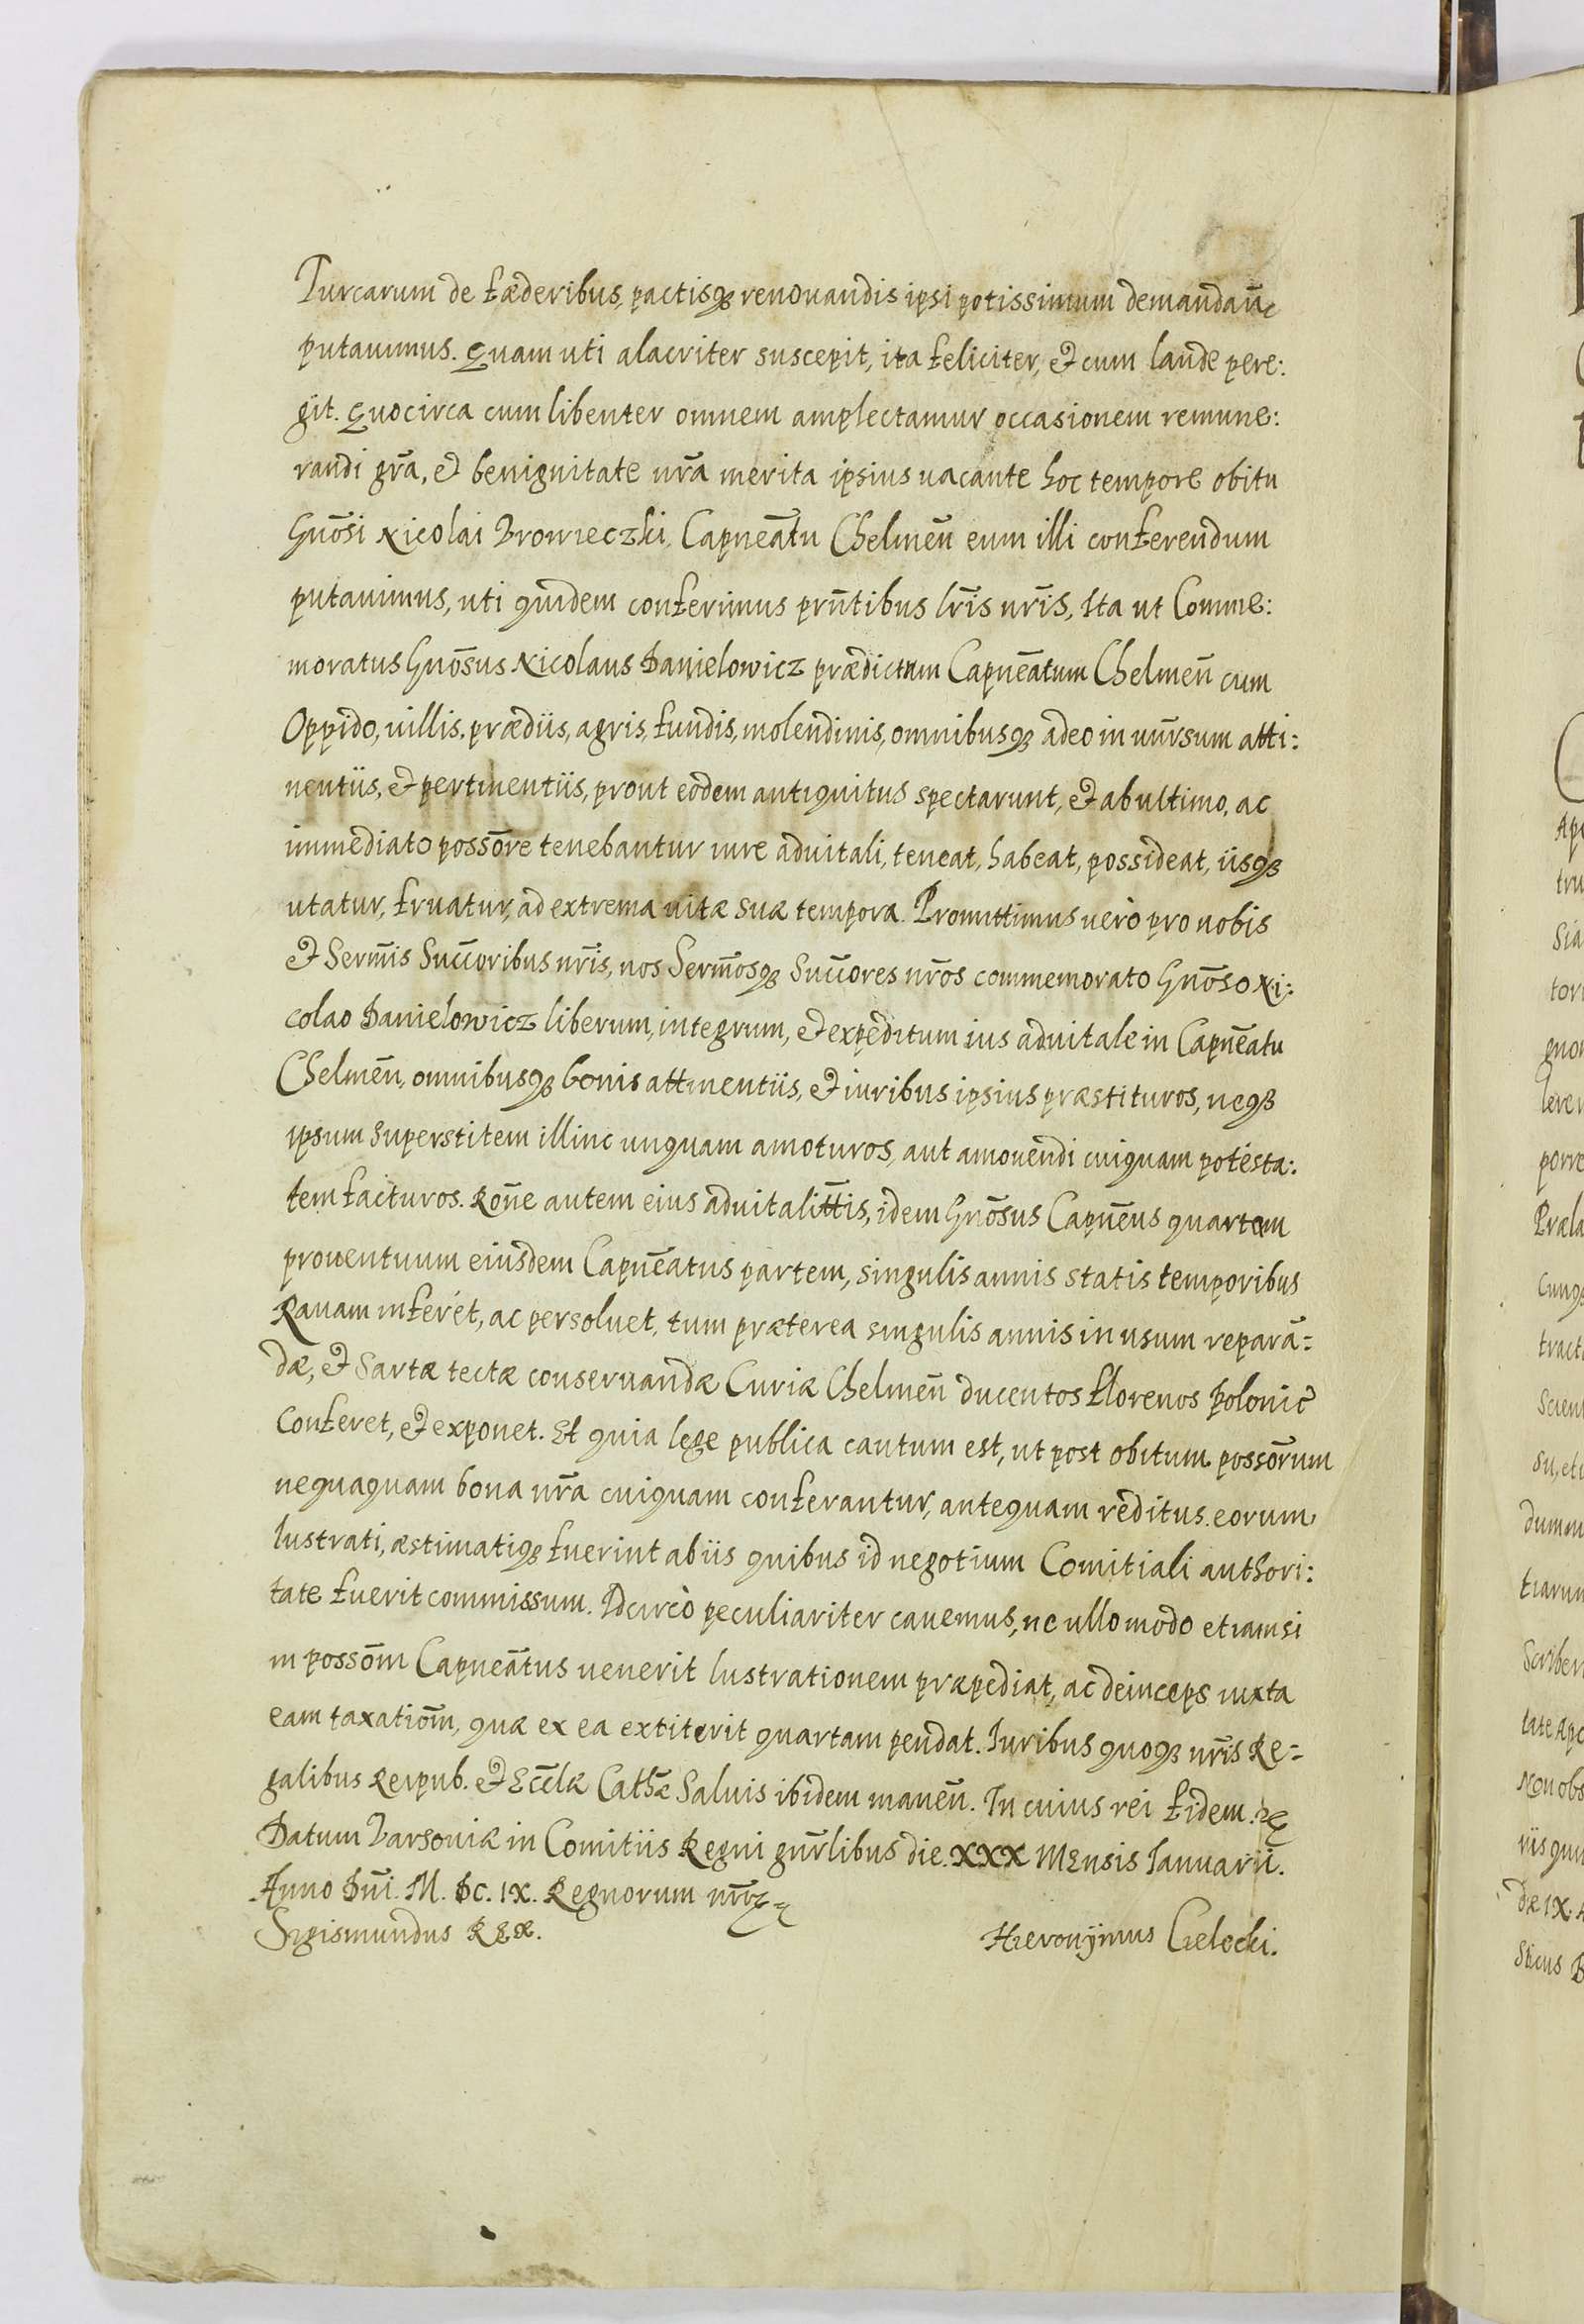 Turcarum de fæderibus, pactisqꝫ renouandis ipsi potissimum demandañ
putauimus. Quam uti alacriter suscepit, ita feliciter, et cum laude pere:
git. Quocirca cum libenter omnem amplectamur occasionem remune:
randi gr̃a, et benignitate nr̃a merita ipsius uacante hoc tempore obitu
Gnõsi Nicolai Browieczki, Capneãtu Chelmeñ eum illi conferendum
putauimus, uti quidem conferimus prñtibus lr̃is nr̃is, Ita ut Comme:
moratus Gnõsus Nicolaus Danielowicz prædictum Capneãtum Chelmeñ cum
Oppido, uillis, prædiis, agris, fundis, molendinis, omnibusqꝫ adeo in uñrsum atti:
nentiis, et pertinentiis, prout eodem antiquitus spectarunt, et ab ultimo, ac
immediato possõre tenebantur iure aduitali, teneat, habeat, possideat, iisqꝫ
utatur, fruatur, ad extrema uitæ suæ tempora. Promittimus uerò pro nobis
et Serm̃is Succ̃oribus nr̃is, nos Serm̃osqꝫ Succ̃ores nr̃os commemorato Gnõso Ni:
colao Danielowicz liberum, integrum, et expeditum ius aduitale in Capneãtu
Chelmeñ, omnibusqꝫ bonis attinentiis, et iuribus ipsius præstituros, neqꝫ
ipsum superstitem illinc unquam amoturos, aut amouendi cuiquam potesta:
tem facturos. Rõne autem eius aduitalitt̃is, idem Gnõsus Capnẽus quartam
prouentuum eiusdem Capneãtus partem, singulis annis statis temporibus
Rauam inferet, ac persoluet, tum præterea singulis annis in usum reparã=
dæ, et Sartæ tectæ conseruandæ Curiæ Chelmeñ ducentos florenos polonic̃
Conferet, et exponet. Et quia lege publica cautum est, ut post obitum possõrum
nequaquam bona nr̃a cuiquam conferantur, antequam reditus eorum
lustrati, æstimatiqꝫ fuerint ab iis quibus id negotium Comitiali authori:
tate fuerit commissum. Idcircò peculiariter cauemus, ne ullo modo etiamsi
in possõm Capneãtus uenerit lustrationem præpediat, ac deinceps iuxta
eam taxatiõm, quæ ex ea extiterit quartam pendat. Iuribus quoqꝫ nr̃is Re=
galibus Reipub. et Eccl̃æ Cathæ̃ Saluis ibidem maneñ. In cuius rei fidem.
Datum Varsouiæ in Comitiis Regni gnr̃libus die. XXX Mensis Ianuarii.
Anno Dñi. M. DC. IX. Regnorum nr̃oꝝ
Sigismundus Rex.
Hieronÿmus Cielecki.